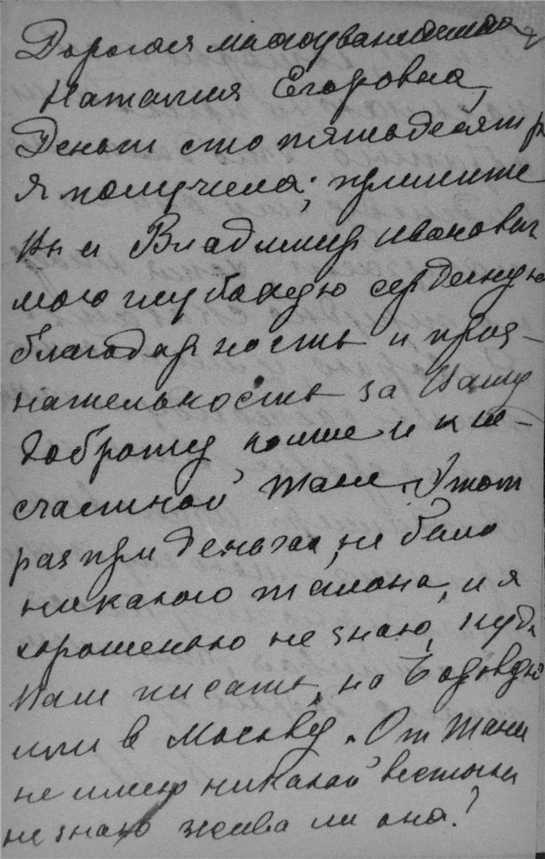 Дорогая многоуважаемая
Наталия Егоровна,
Деньги сто пятьдесят р
я получила; примите
Вы и Владимир Иванович
мою глубокую сердечную
благодарность и призна-
нательность за Вашу
доброту ко мне и к не-
счастной Тане. Этот
раз при деньгах не было
никакого талона, и я
хорошенько не знаю, куда
Вам писать, на
или в Москву. От Тани
не имею никакой весточки
не знаю жива ли она?